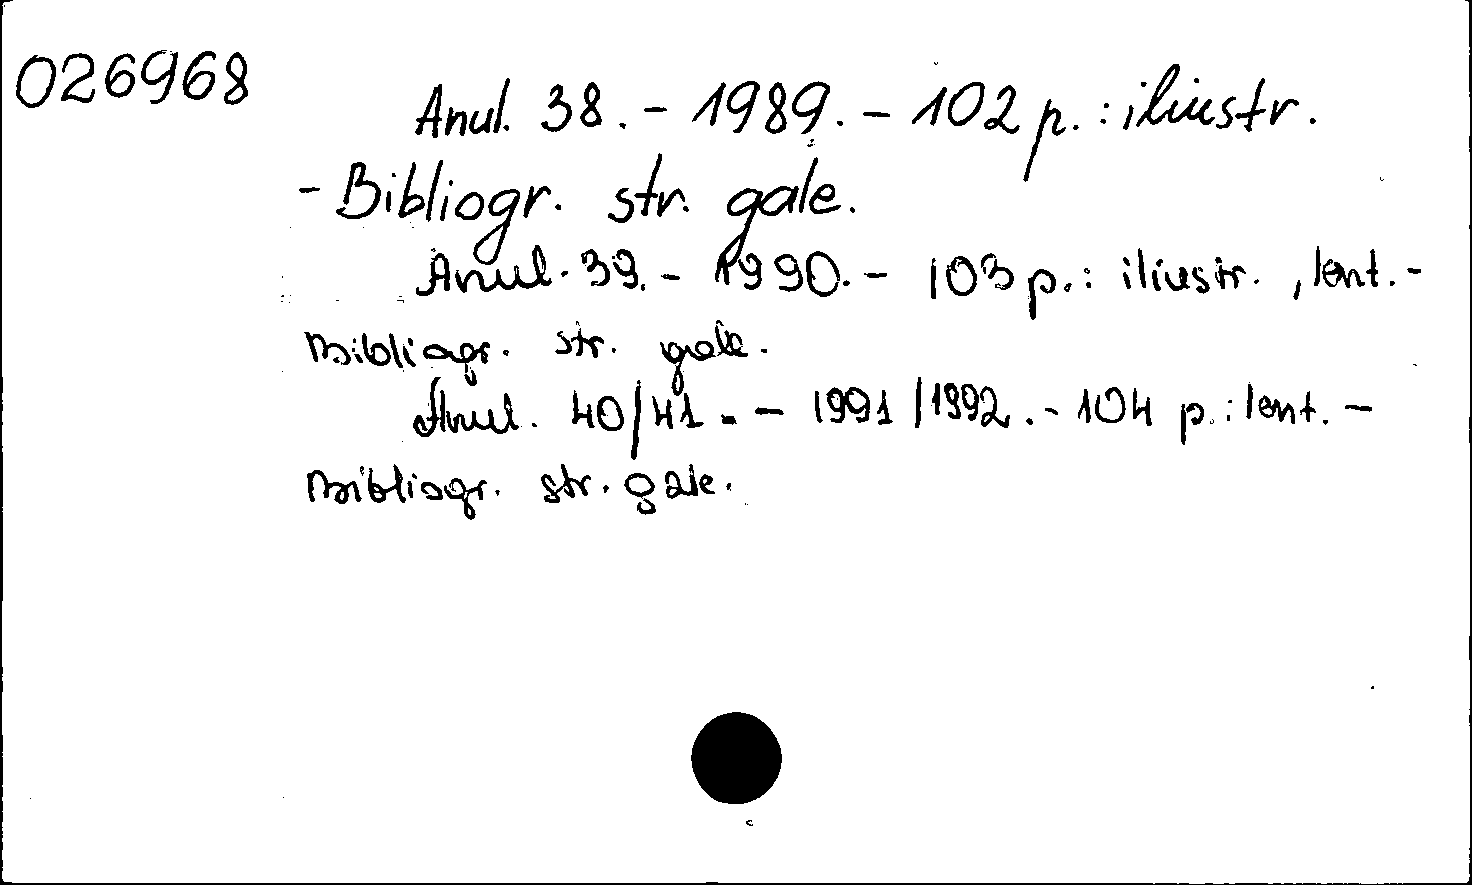 026968
Anul. 38. - 1989. - 102 p. : iliustr.
- Bibliogr. str. gale.
Anul. 39. - 1990. - 103 p. : iliustr. , lent. -
Bibliogr. str. gale.
Anul. 40/41. - 1991/1992. - 104 p. : lent. -
Bibliogr. str. gale.